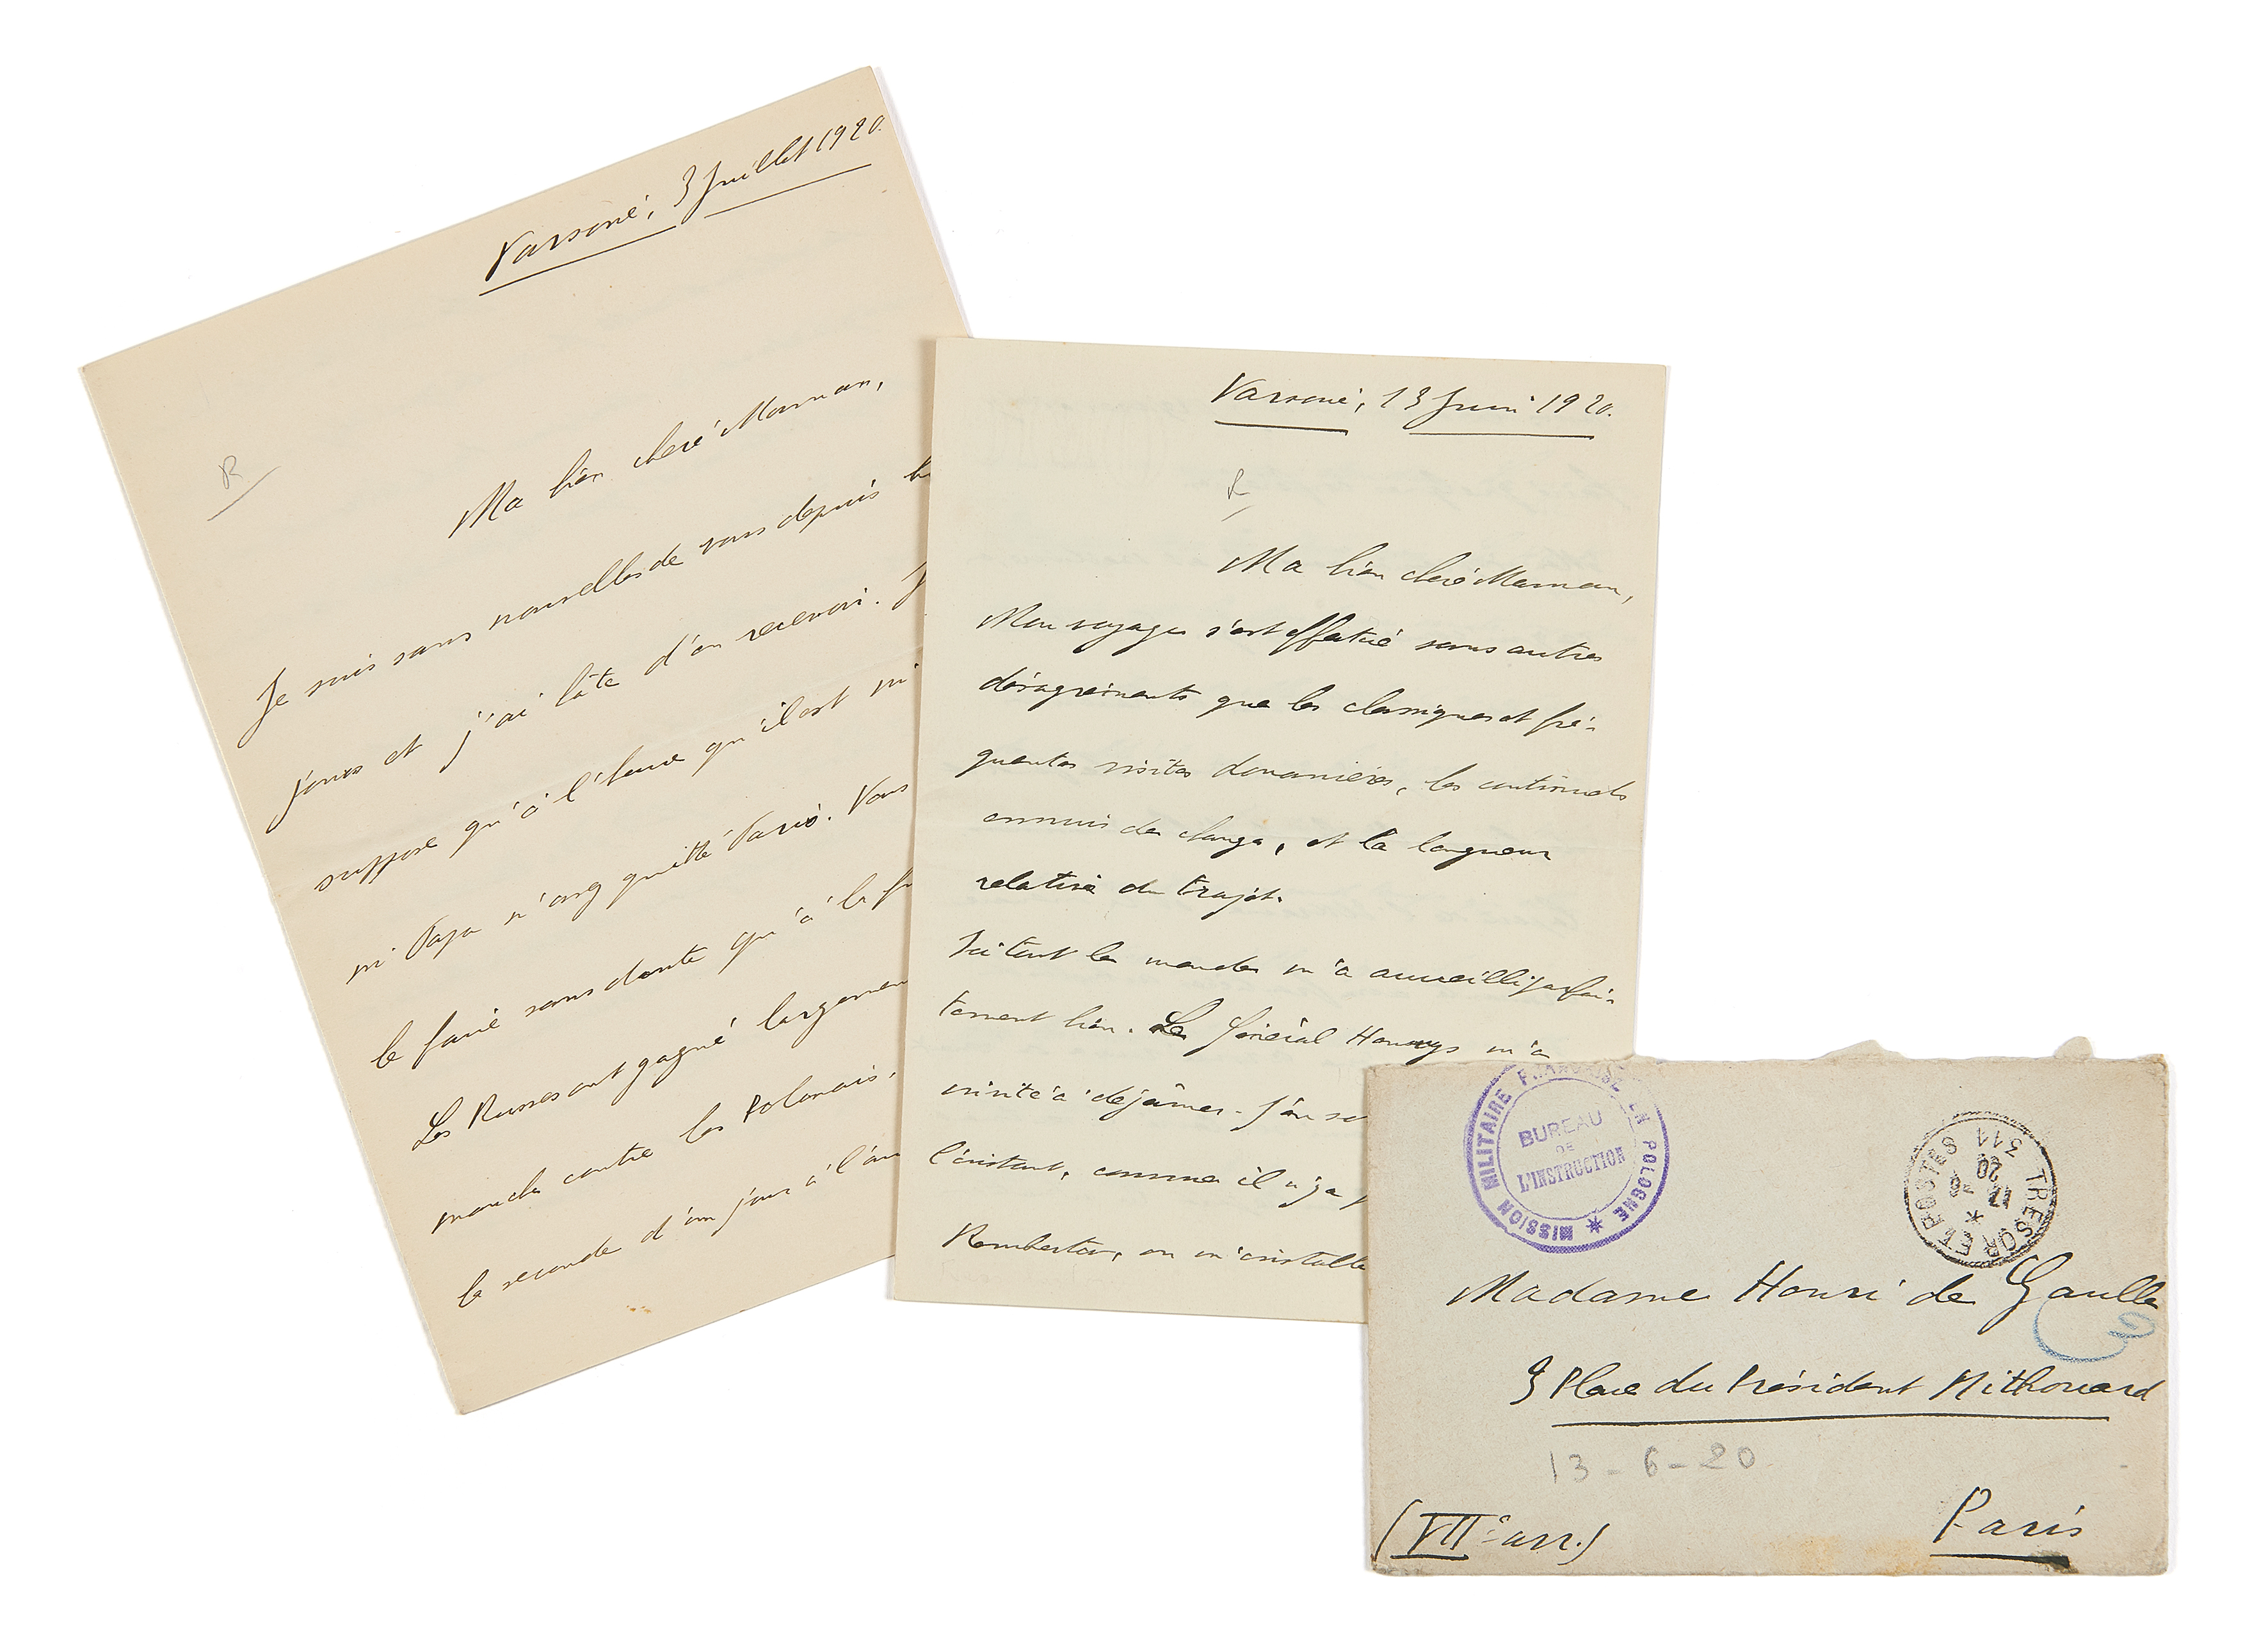 Varsovie, 3 Juillet 1920.
R
Ma bien chère Maman,
Je suis sans nouvelles de vous depuis
jours et j'ai hâte d'en recevoir. J
suppose qu'à l'heure qu'il est ni
ni Papa n'avez quitté Paris. Vous
le faire sans doute qu'à la f
Les Russes ont gagné largemen
manche contre les Polonais.
la seconde d'un jour à l'au
Varsovie, 13 Juin 1920.
R
Ma bien chère Maman,
Mon voyage s'est effectué sans autres
désagréments que les classiques et fré-
quentes visites douanières, les continuels
ennuis de change, et la longueur
relative du trajet.
Ici tout le monde m'a accueilli parfai-
tement bien. Le Général Henrys m'a
invité à déjeûner. J'en
l'instant, comme il n'y a p
Rembertow, on m'installe
MISSION MILITAIRE FRANÇAISE EN POLOGNE *
BUREAU
DE
L'INSTRUCTION
TRESOR ET POSTES 311
*
17 -6
20
Madame Henri de Gaulle
3 Place du Président Mithouard
13-6-20
(VIIe arr.)
Paris